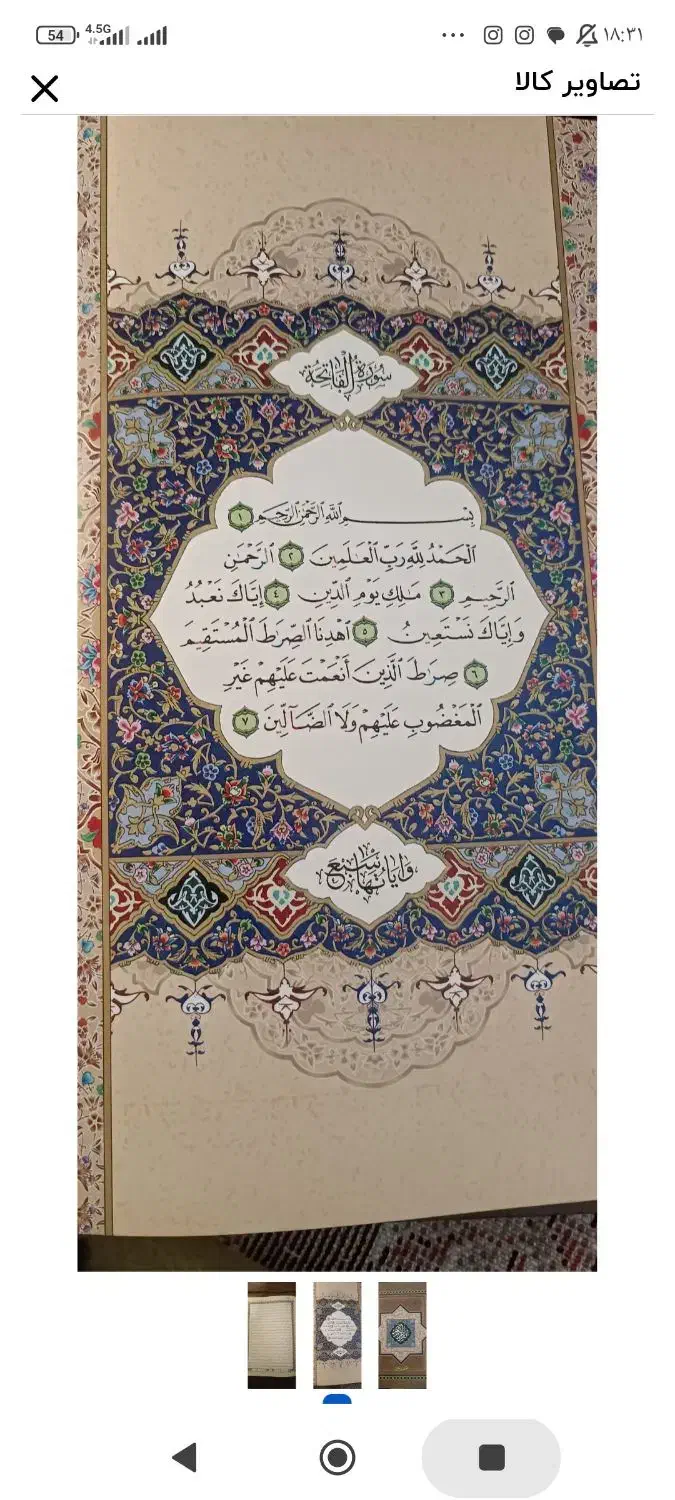 54
4.5G
۱۸:۳۱
تصاویر کالا
سُورَةُ الْفَاتِحَة
بِسْمِ ٱللَّهِ ٱلرَّحْمَٰنِ ٱلرَّحِيمِ ١
ٱلْحَمْدُ لِلَّهِ رَبِّ ٱلْعَٰلَمِينَ ٢ ٱلرَّحْمَٰنِ
ٱلرَّحِيمِ ٣ مَٰلِكِ يَوْمِ ٱلدِّينِ ٤ إِيَّاكَ نَعْبُدُ
وَإِيَّاكَ نَسْتَعِينُ ٥ ٱهْدِنَا ٱلصِّرَٰطَ ٱلْمُسْتَقِيمَ
٦ صِرَٰطَ ٱلَّذِينَ أَنْعَمْتَ عَلَيْهِمْ غَيْرِ
ٱلْمَغْضُوبِ عَلَيْهِمْ وَلَا ٱلضَّآلِّينَ ٧
وَآيَاتُهَا سَبْع